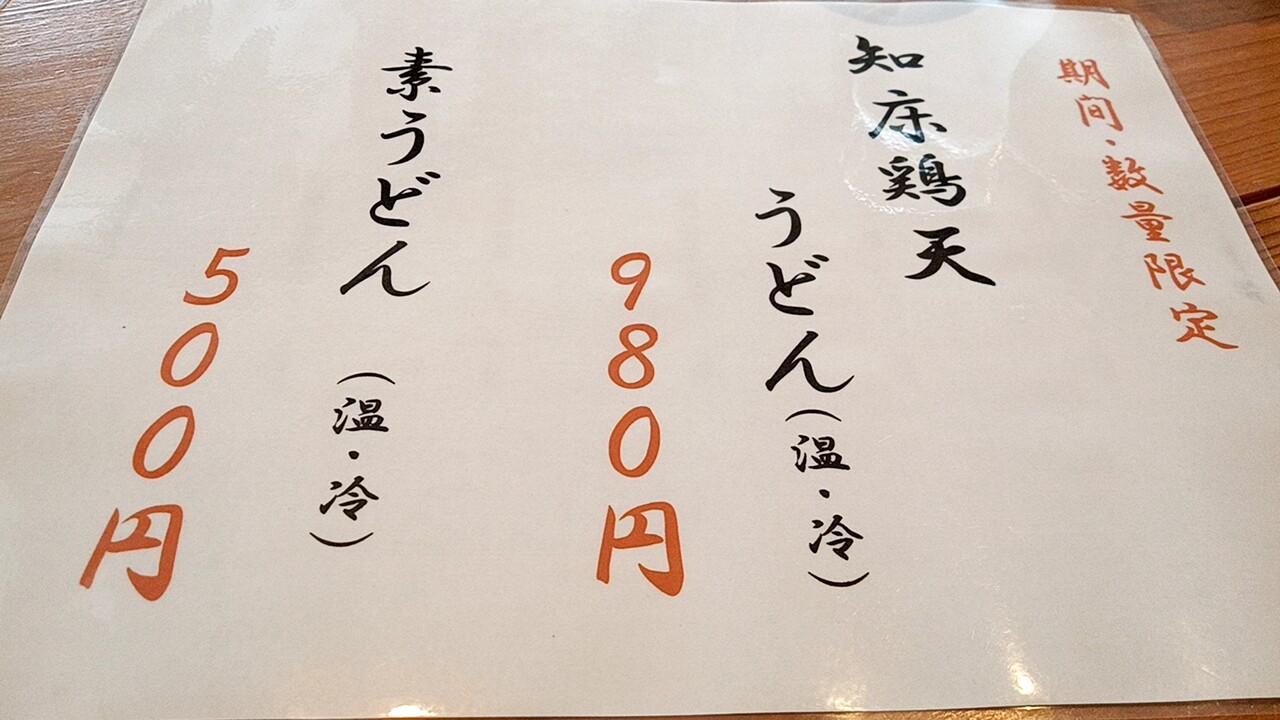 期間・数量限定
知床鶏天
うどん(温・冷)
980円
素うどん (温・冷)
500円